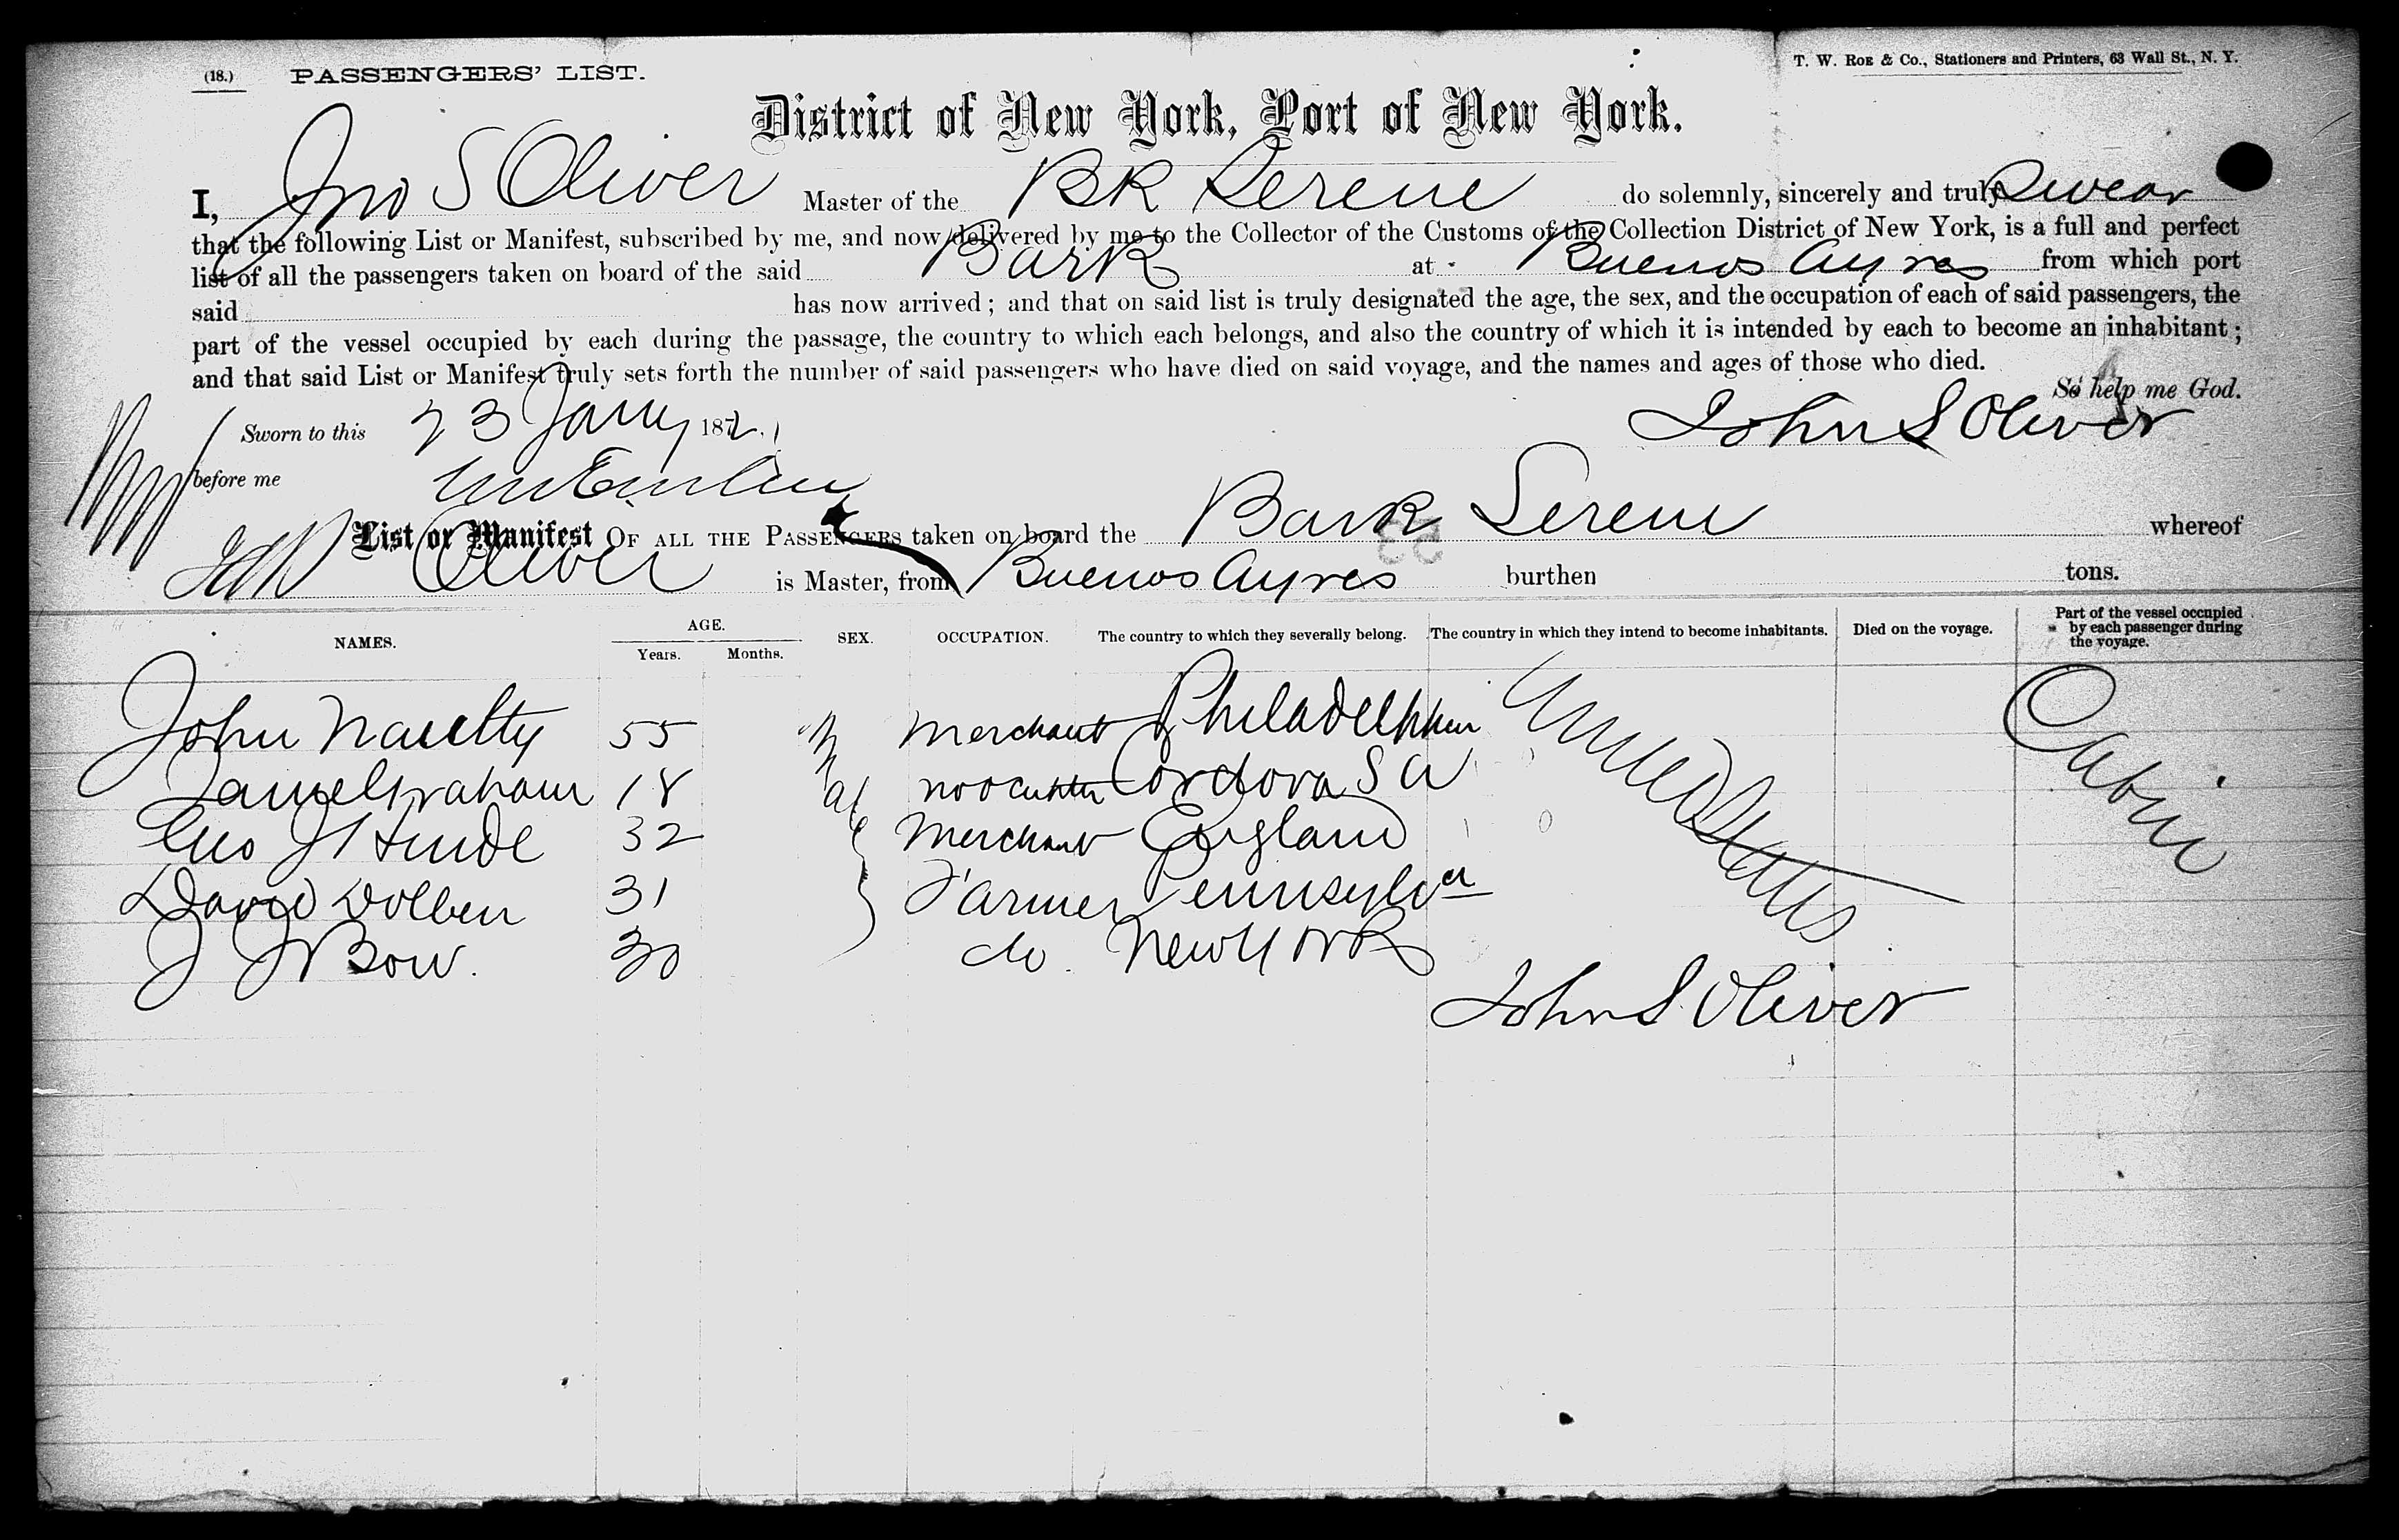 (18.) PASSENGERS' LIST.
T. W. ROE & Co., Stationers and Printers, 63 Wall St., N. Y.
District of New York, Port of New York.
I, Jno S Oliver Master of the BK Serene do solemnly, sincerely and truly Swear
that the following List or Manifest, subscribed by me, and now delivered by me to the Collector of the Customs of the Collection District of New York, is a full and perfect
list of all the passengers taken on board of the said Bark at Buenos Ayres from which port
said has now arrived; and that on said list is truly designated the age, the sex, and the occupation of each of said passengers, the
part of the vessel occupied by each during the passage, the country to which each belongs, and also the country of which it is intended by each to become an inhabitant;
and that said List or Manifest truly sets forth the number of said passengers who have died on said voyage, and the names and ages of those who died.
So help me God.
Sworn to this 23 Jany 1872 John S Oliver
before me
List or Manifest OF ALL THE PASSENGERS taken on board the Bark Serene whereof
Oliver is Master, from Buenos Ayres burthen tons.
NAMES. AGE. Years. Months. SEX. OCCUPATION. The country to which they severally belong. The country in which they intend to become inhabitants. Died on the voyage. Part of the vessel occupied by each passenger during the voyage.
John 55 Male Merchant Philadelphia United States Cabin
Graham 18 Cordova S A
Geo 32 Merchant England
David Dolben 31 Farmer Pennsylva
J J Bow. 30 do. New York
John S Oliver